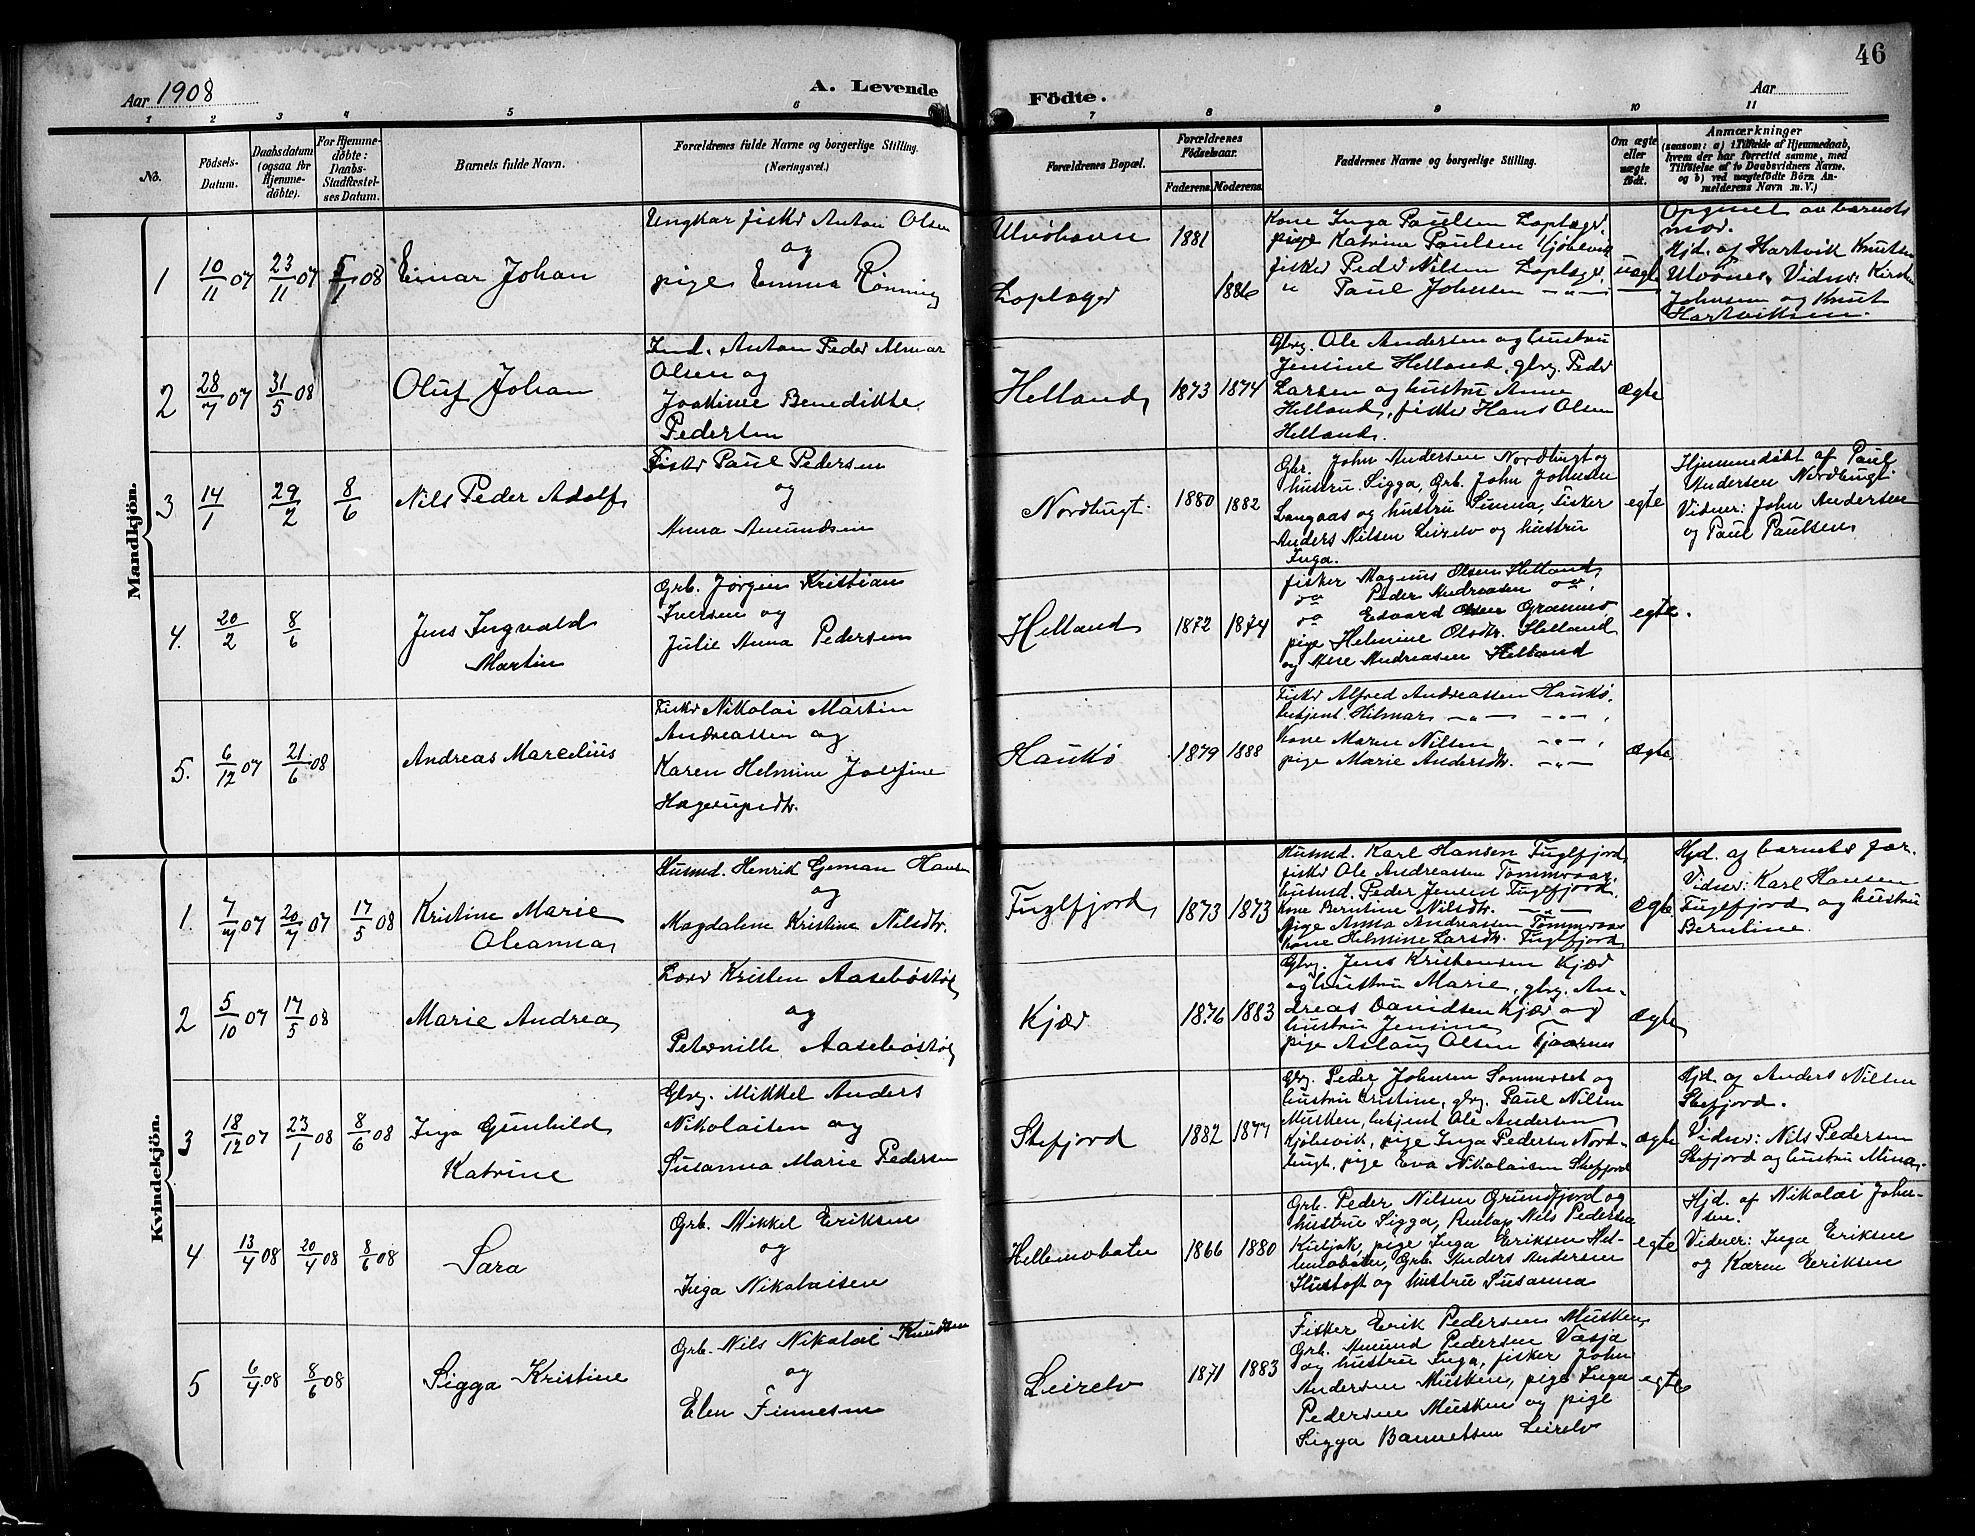 46
Aar 1908
A. Levende
Födte.
Aar
1 2 3 4 5 6 7 8 9 10 11
No.
Födsels-
Datum.
Daabsdatum
(ogsaa for
Hjemme-
døbte).
For Hjemme-
døbte:
Daabs-
Stadfæstel-
ses Datum.
Barnets fulde Navn.
Forældrenes fulde Navne og borgerlige Stilling.
(Næringsvei.)
Forældrenes Bopæl.
Forældrenes
Födselsaar.
Faderens. Moderens.
Faddernes Navne og borgerlige Stilling.
Om ægte
eller
uægte
födt.
Anmærkninger
(saasom: a) i Tilfælde af Hjemmedaab,
hvem der har forrettet samme, med
Tilföielse af to Daabsvidners Navne.
og b) ved uægtefödte Börn An-
melderens Navn m. V.)
Mandkjön.
1
10/11 07
23/11 07
5/1 08
Einar Johan
Ungkar fisker Anton Olsen
og
pige Emma Rönning
Ulvöhavn
Loplager
1881
1886
Kone Inga Paulsen Loplager.
pige Katrine Paulsen
fisker Peder Nilsen Loplager.
" Paul Johnsen —"—
uægte
Opgivet av barnets
mor.
Hjd. af Hartvik Knutsen
Ulvönes. Vidner: Kirsten
Johnsen og Knut
Hartviksen.
2
28/7 07
31/5 08
Oluf Johan
Ind. Anton Peder Almar
Olsen og
Joakine Benedikte
Pedersen
Helland,
1873
1874
Gbrg. Ole Andersen og hustru
Jensine Helland, gbrg. Peder
Larsen og hustru Anne
Helland, fisker Hans Olsen
Helland.
ægte
3
14/1
29/2
8/6
Nils Peder Adolf,
Fisker Paul Pedersen
og
Anna Amundsen
Nordbugt.
1880
1882
Gbr. John Andersen Nordbugt og
hustru Sigga, Grb. John Johnsen
Langaas og hustru Simma, Fisker
Anders Nilsen Leirelv og hustru
Inga.
egte
Hjemmedöbt af Paul
Andersen Nordbugt.
Vidner: John Andersen
og Paul Paulsen,
4.
20/2
8/6
Jens Ingvald
Martin
Grb. Jörgen Kristian
Iversen og
Julie Anna Pedersen
Helland
1872
1874
fisker Magnus Olsen Helland,
Peder Andreasen
Edvard Olsen
pige Helmine Olsdtr. Helland
og Andreasen Helland
egte.
5.
6/12 07
21/6 08
Andreas Marcelius
Fisker Nikolai Martin
Andreassen og
Karen Helmine Josefine
Hagerupsdtr.
Haukö
1879
1888
Fisker Alfred Andreassen Haukö.
betjent. Hilmar —"— —"—.
Kone Maren Nilsen —"—.
pige Marie Andersdtr. —"—
ægte
Kvindekjön.
1.
7/7 07
20/7 07
17/5 08
Kristine Marie
Oleanna,
Husmd. Henrik German Hansen
og
Magdalene Kristine Nilsdtr.
Fuglfjord,
1873
1873
Husmd. Karl Hansen Fuglfjord,
fisker Ole Andreassen Tömmraas,
husmd. Peder Jensen Fuglfjord.
Kone Berntine Nilsdtr. —"—
pige Anna Andreassen Tömmraas
kone Helmine Larsdtr. Fuglfjord,
egte
Hjd. af barnets far.
Vidner: Karl Hansen
Fuglfjord og hustru
Berntine.
2
5/10 07
17/5 08
Marie Andrea,
Lærer Kristen Aaseböstöl
og
Peternille Aaseböstöl
Kjær
1876
1883
Gbrg. Jens Kristensen Kjær
og hustru Marie, gbrg. An-
dreas Davidsen Kjær og
hustru Jensine
pige Aslaug Olsen
ægte
3
18/12 07
23/1 08
8/6 08
Inga Gunhild
Katrine
Gbrg. Mikkel Anders
Nikolaisen og
Susanna Marie Pedersen
Stefjord
1882
1877
Gbrg. Peder Johnsen Sommerset og
hustru Kristine, gbrg. Paul Nilsen
Musken, betjent Ole Andersen,
Kjöbsvik, pige Inga Pedersen Nord-
bugt, pige Eva Nikolaisen Stefjord
ægte
Hjd. af Anders Nilsen
Stefjord.
Vidner: Nils Pedersen
Stefjord og hustru Mina.
4
13/4 08
20/4 08
8/6 08
Sara
Grb. Mikkel Eriksen
og
Inga Nikolaisen
Hellemobotn
1866
1880
Grb. Peder Nilsen Grundfjord og
hustru Sigga, Nils Pedersen
pige Inga Eriksen Hel-
lemobotn, Grb. Anders Andersen
og hustru Susanna
egte
Hjd. af Nikolai John-
sen.
Vidner: Inga Eriksen
og Karen Eriksen
5
6/4 08
8/6 08
Sigga Kristine
Grb. Nils Nikolai Knudsen
og
Elen Finnesen
Leirelv
1871
1883
Fisker Erik Pedersen Musken,
Grb. Amund Pedersen Vasja
og hustru Inga, fisker John
Andersen Musken, pige Inga
Pedersen Musken og pige
Sigga Leirelv
egte